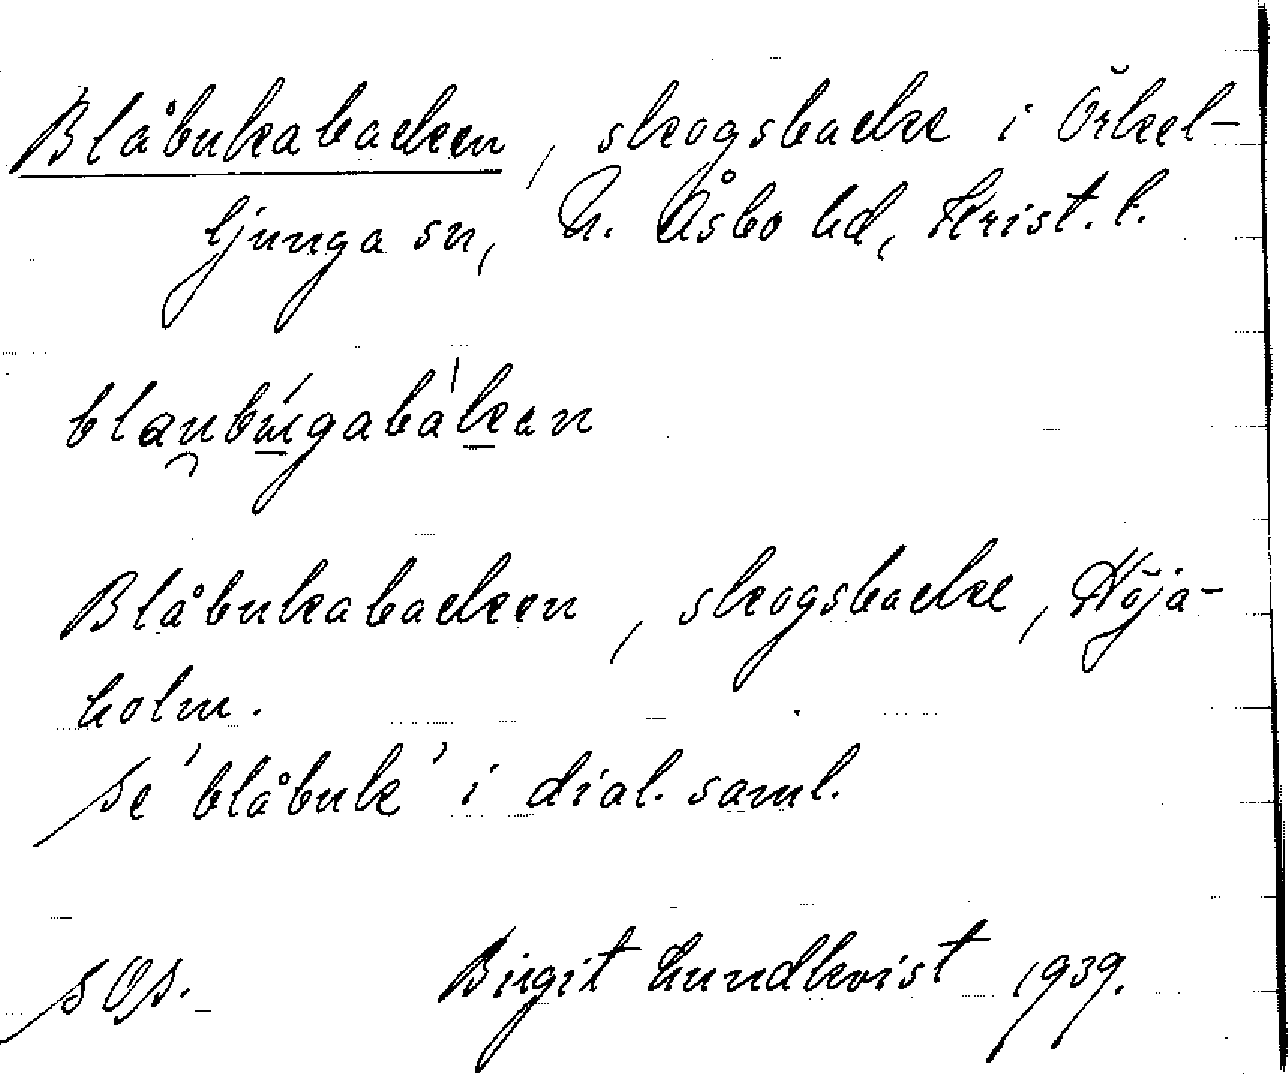 Blåbukabacken, skogsbacke i Örkel-
ljunga sn, N. Åsbo hd, Krist. l.
blau̯bú̲gabàk̲en
Blåbukabacken, skogsbacke, Höja-
holm.
Se 'blåbuk' i dial. saml.
SOS. Birgit Lundkvist 1939.